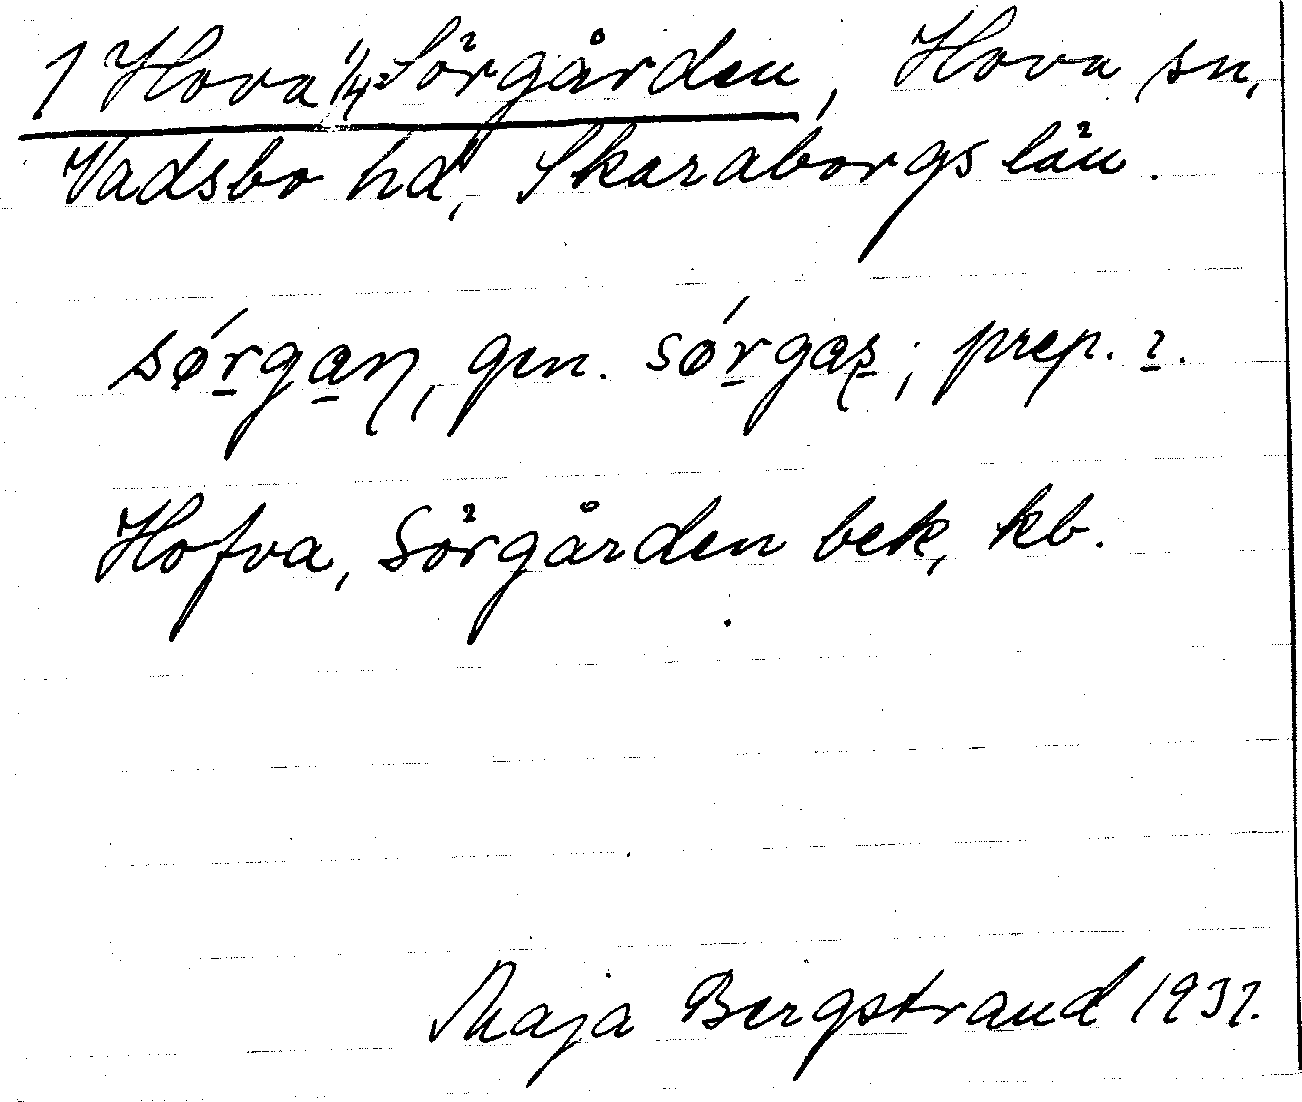 1 Hova 1/4 Sörgården, Hova sn,
Vadsbo hd, Skaraborgs län.
sǿrgaɳ, gen. sǿrgaʂ; prep. ı.
Hofva, Sörgården bek, kb.
Maja Bergstrand 1931.